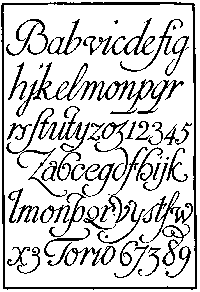 Babvicdefig
hjkelmonpqr
rsſtutyzoz12345
Zabcegdfhijk
lmonpqrvystfw
x3 Torio 67389